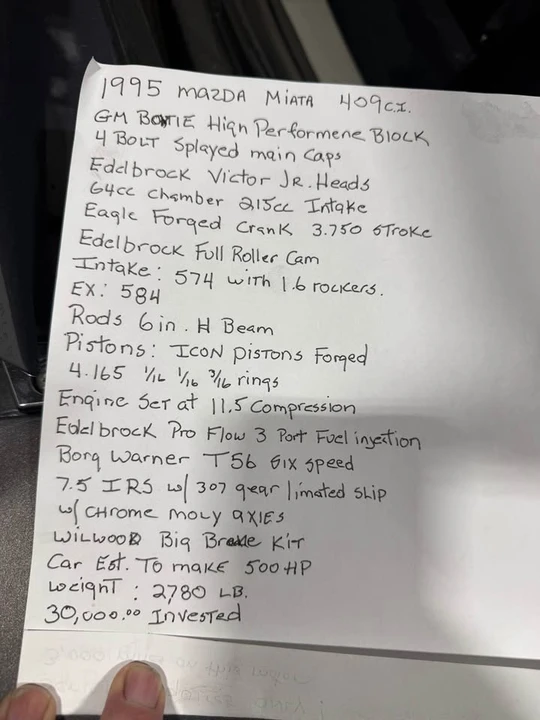 1995 MAZDA MIATA 409 C.I.
GM BOWTIE High Performene Block
4 BOLT Splayed main Caps
Edelbrock Victor JR. Heads
64cc Chamber 215cc Intake
Eagle Forged Crank 3.750 STroke
Edelbrock Full Roller Cam
Intake: 574 with 1.6 rockers.
EX: 584
Rods 6 in. H Beam
Pistons: ICON PISTONS Forged
4.165 1/16 1/16 3/16 rings
Engine Set at 11.5 Compression
Edelbrock Pro Flow 3 Port Fuel injection
Borg Warner T56 Six speed
7.5 IRS w/ 307 gear limated slip
w/ CHROME MOLY AXIES
WILWOOD Big Brake KIT
Car Est. To make 500 HP
Weight: 2,780 LB.
30,000.00 Invested